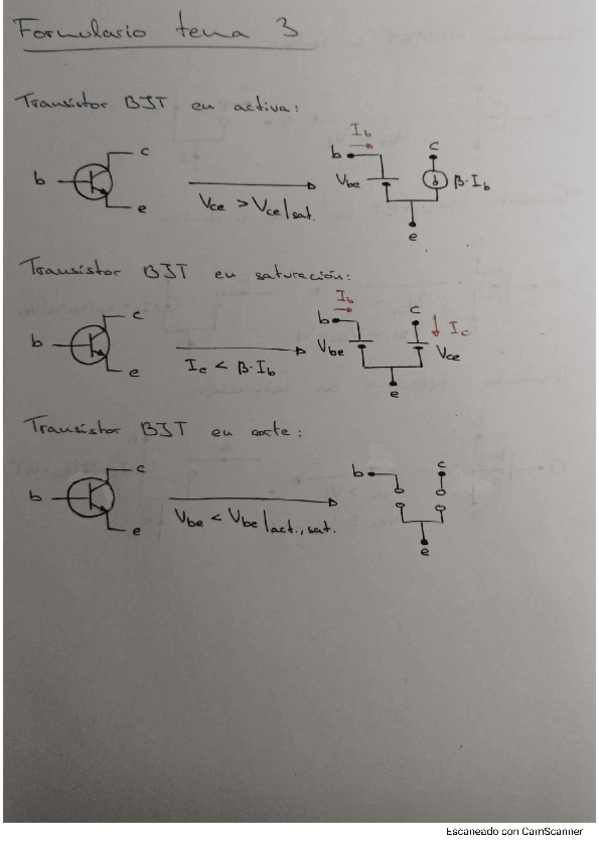 Formulario tema 3
Transistor BJT en activa:
b c e
Vce > Vce|sat.
Ib
b Vbe c β·Ib
e
Transistor BJT en saturación:
b c e
Ic < β·Ib
Ib
b Vbe c Ic Vce
e
Transistor BJT en corte:
b c e
Vbe < Vbe|act., sat.
b c
e
Escaneado con CamScanner